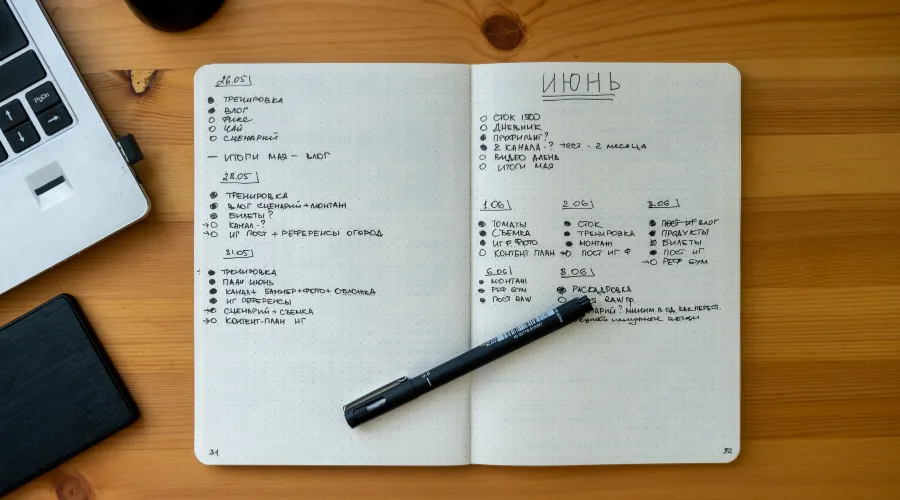 26.05
ТРЕНИРОВКА
ВЛОГ
ФИКС
ЧАЙ
СЦЕНАРИЙ
— ИТОГИ МАЯ — ВЛОГ
28.05
ТРЕНИРОВКА
ВЛОГ СЦЕНАРИЙ + МОНТАЖ
БИЛЕТЫ?
КАНАЛ - ?
ИГ ПОСТ + РЕФЕРЕНСЫ ОГОРОД
31.05
ТРЕНИРОВКА
ПЛАН ИЮНЬ
КАНАЛ + БАННЕР + ФОТО + ОБЛОЖКА
ИГ РЕФЕРЕНСЫ
СЦЕНАРИЙ + СЪЕМКА
КОНТЕНТ-ПЛАН ИГ
31
ИЮНЬ
СТОК 1500
ДНЕВНИК
ПРОФИЛИНГ?
2 КАНАЛА - ? ТЕСТ - 2 МЕСЯЦА
ВИДЕО АЛЕНА
ИТОГИ МАЯ
1.06
ТОМАТЫ
СЪЕМКА
ИГ Ф ФОТО
КОНТЕНТ ПЛАН
2.06
СТОК
ТРЕНИРОВКА
МОНТАЖ
ПОСТ ИГ Ф
3.06
ПОСТ ИГ ВЛОГ
ПРОДУКТЫ
БИЛЕТЫ
ПОСТ ИГ
РЕФ GYM
6.06
МОНТАЖ
РЕФ GYM
ПОСТ RAW
8.06
РАСКАДРОВКА
RAW ГР.
МИНИМ. В ОД. КАК ПЕРЕСТ.
вещи
32
PgDn
0.8